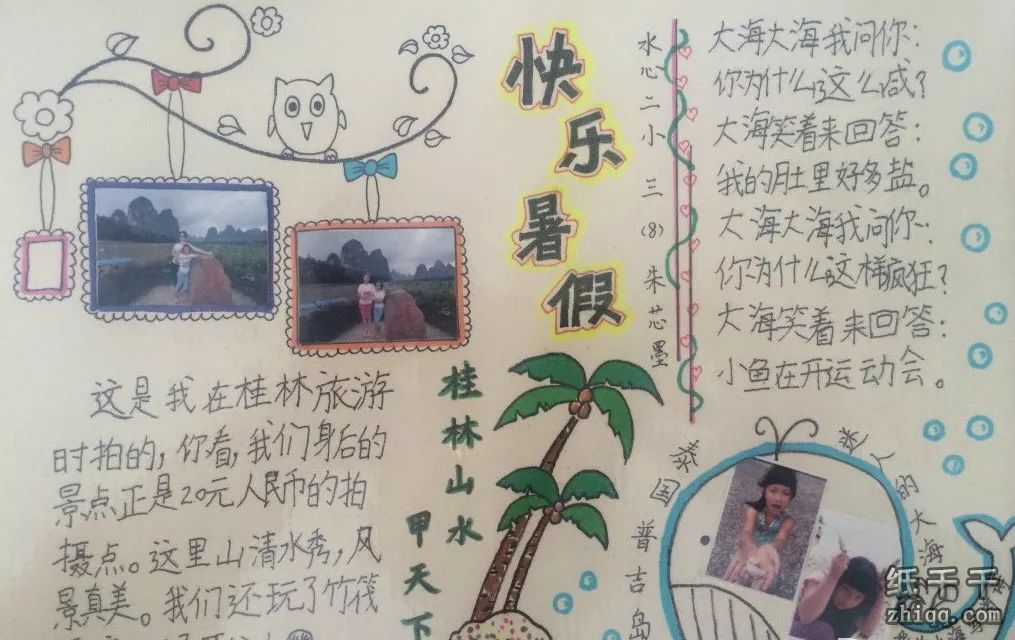 快乐暑假
水心二小三(8)朱芯墨
大海大海我问你:
你为什么这么咸?
大海笑着来回答:
我的肚里好多盐。
大海大海我问你:
你为什么这样疯狂?
大海笑着来回答:
小鱼在开运动会。
这是我在桂林旅游
时拍的,你看,我们身后的
景点正是20元人民币的拍
摄点。这里山清水秀,风
景真美。我们还玩了竹筏
桂林山水
甲天下
泰国普吉岛
迷人的大海
纸于千
zhiqq.com